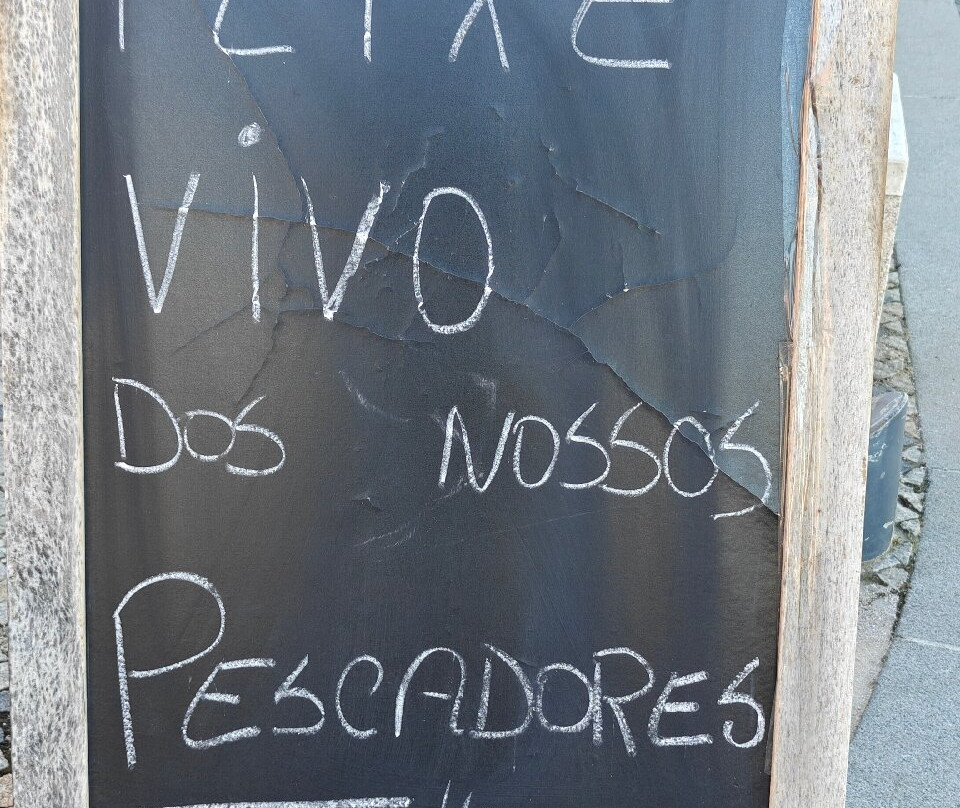 PEIXE
VIVO
DOS NOSSOS
PESCADORES